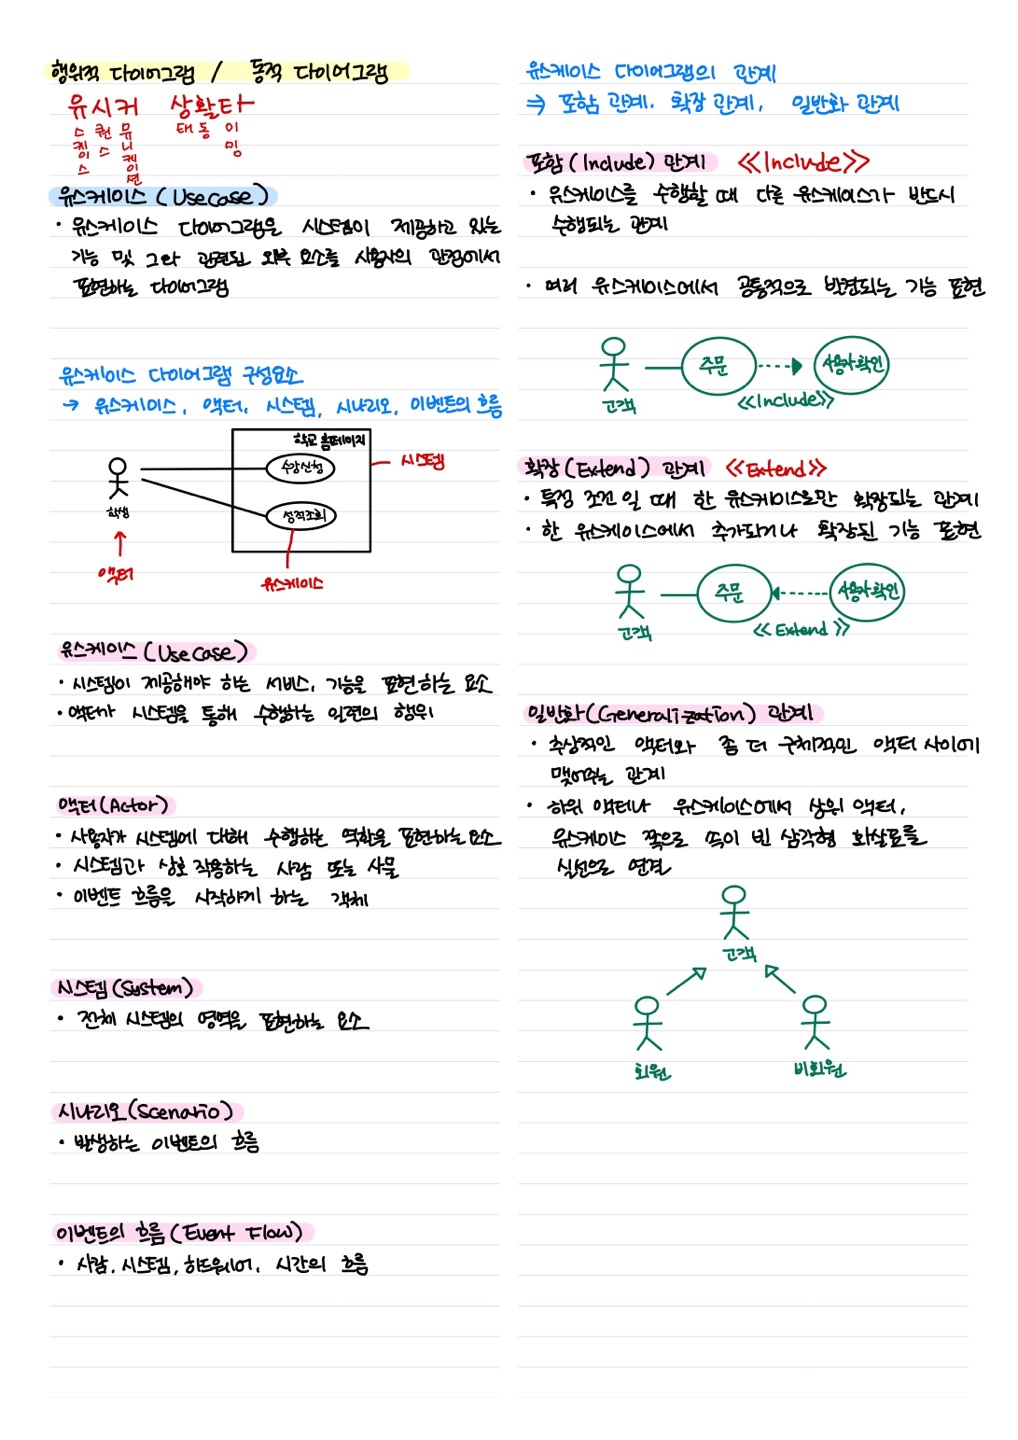 행위적 다이어그램 / 동적 다이어그램
유시커 상활타
스케이스 퀀스 뮤니케이션 태 동 이밍
유스케이스 (Usecase)
· 유스케이스 다이어그램을 시스템이 제공하고 있는
기능 및 그와 관련된 외부 요소를 사용자의 관점에서
표현하는 다이어그램
유스케이스 다이어그램 구성요소
→ 유스케이스, 액터, 시스템, 시나리오, 이벤트의 흐름
학교 홈페이지
수강신청
시스템
학생
성적조회
액터
유스케이스
유스케이스 (Usecase)
· 시스템이 제공해야 하는 서비스, 기능을 표현하는 요소
· 액터가 시스템을 통해 수행하는 일련의 행위
액터(Actor)
· 사용자가 시스템에 대해 수행하는 역할을 표현하는 요소
· 시스템과 상호 작용하는 사람 또는 사물
· 이벤트 흐름을 시작하게 하는 객체
시스템(System)
· 전체 시스템의 영역을 표현하는 요소
시나리오(Scenario)
· 발생하는 이벤트의 흐름
이벤트의 흐름(Event Flow)
· 사람, 시스템, 하드웨어, 시간의 흐름
유스케이스 다이어그램의 관계
⇒ 포함 관계, 확장 관계, 일반화 관계
포함(Include) 관계 <<Include>>
· 유스케이스를 수행할 때 다른 유스케이스가 반드시
수행되는 관계
· 여러 유스케이스에서 공통적으로 발견되는 기능 표현
주문
사용자확인
고객
<<Include>>
확장(Extend) 관계 <<Extend>>
· 특정 조건 일 때 한 유스케이스로만 확장되는 관계
· 한 유스케이스에서 추가되거나 확장된 기능 표현
주문
사용자확인
고객
<<Extend>>
일반화(Generalization) 관계
· 추상적인 액터와 좀 더 구체적인 액터 사이에
맺어주는 관계
· 하위 액터나 유스케이스에서 상위 액터,
유스케이스 쪽으로 속이 빈 삼각형 화살표를
실선으로 연결
고객
회원
비회원